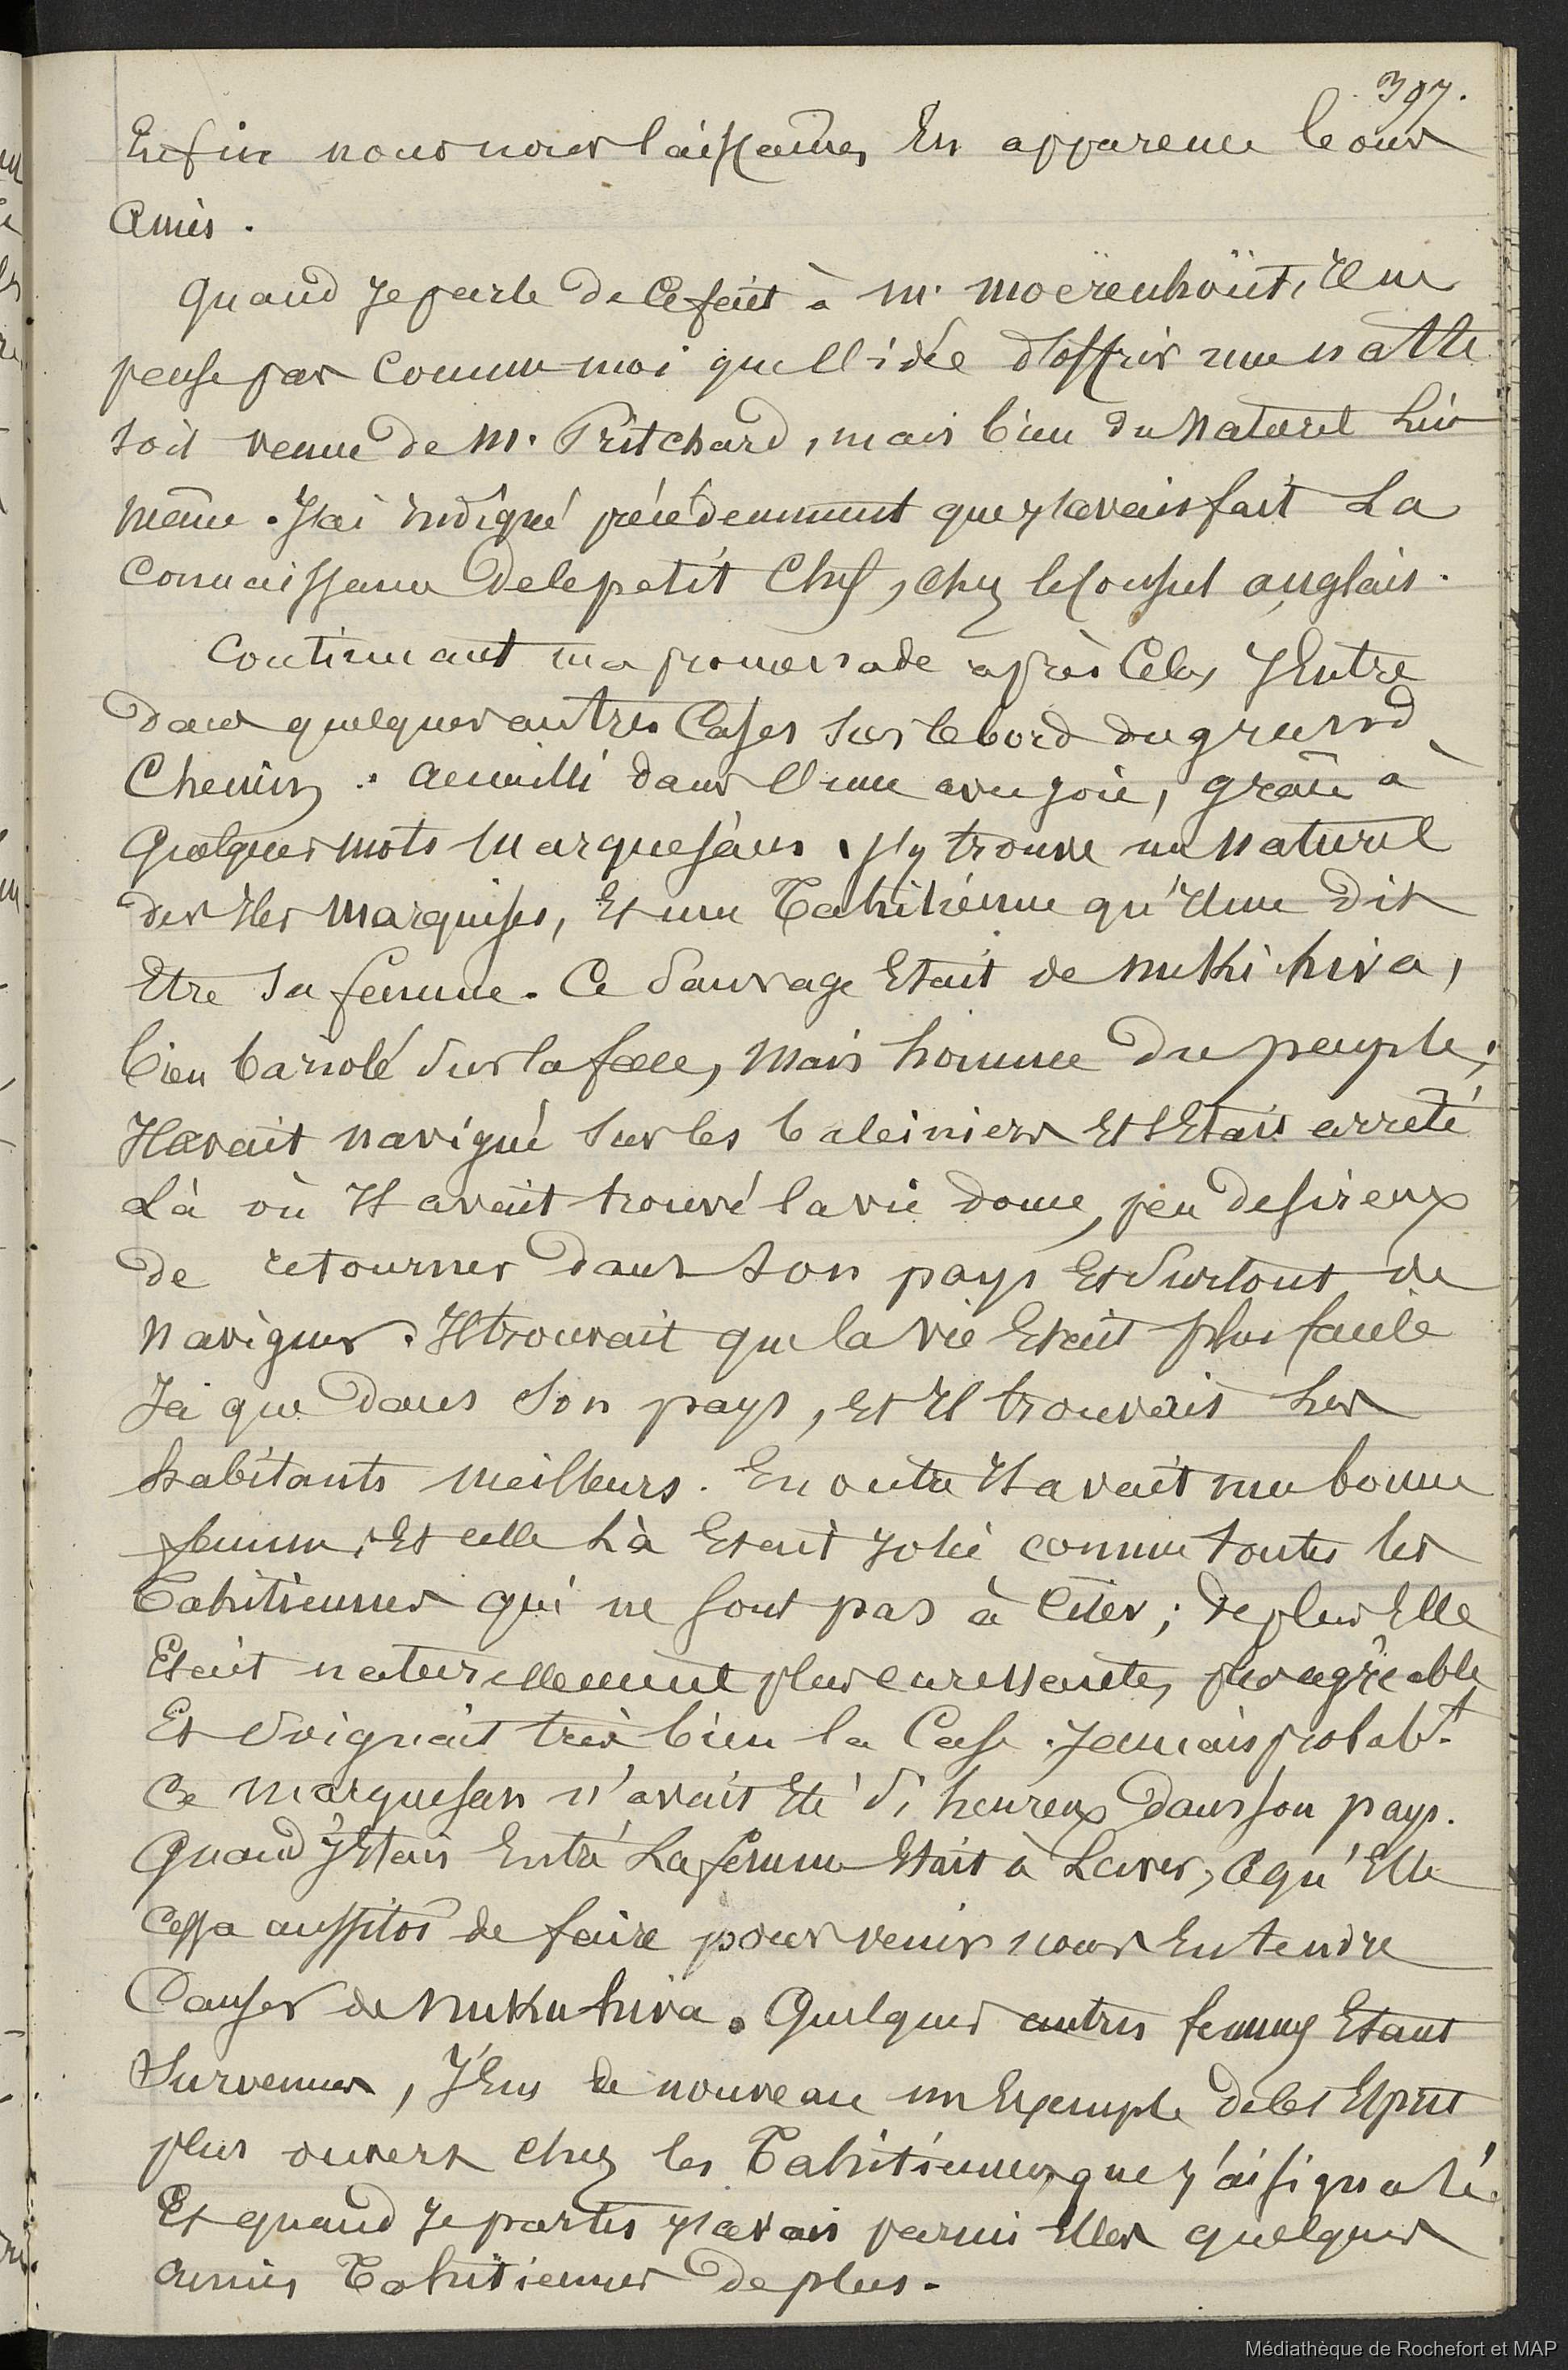 397.
Enfin nous nous laissames En apparence bons
Amis.
Quand Je parle de Ce fait à M. Moërenhoüt, Il ne
pense pas Comme moi que l'idée d'offrir une natte
soit venue de M. Pritchard, mais bien du Naturel Lui
Même. J'ai indiqué précédemment que j'avais fait La
Connaissance de le petit Chef, chez le Consul anglais.
Continuant ma promenade après Cela, J'Entre
dans quelques autres Cases sur le bord du grand
Chemin. Accueilli dans l'une avec joie, grâce à
Quelques mots Marquesans. J'y trouve un Naturel
des Iles Marquises, Et une Tahitienne qu'Il me Dit
Etre Sa femme. Ce Sauvage Etait de Nukihiva,
bien bariolé Sur la face, Mais homme Du peuple;
Il avait navigué Sur les baleiniers Et S'Etait arreté
Là où Il avait trouvé la vie douce, peu desireux
de retourner dans Son pays Et Surtout de
Naviguer. Il trouvait que la vie Etait plus facile
Ici que Dans Son pays, Et Il trouvait Les
habitants meilleurs. En outre Il avait une bonne
femme, Et celle Là Etait Jolie comme toutes les
Tahitiennes qui ne sont pas à Citer; de plus Elle
Etait naturellement plus caressante, plus agréable
Et Soignait très bien la Case. Jamais probabt.
Ce Marquesan n'avait Eté Si heureux Dans son pays.
Quand J'Etais Entré La femme Etait à Laver, Ce qu'Elle
Cessa aussitôt de faire pour venir nous Entendre
Causer de Nukuhiva. Quelques autres femmes Etant
Survenues, J'Eus de nouveau un Exemple de cet Esprit
plus ouvert chez les Tahitiennes que j'ai signalé.
Et quand Je partis j'avais parmi Elles quelques
Amies Tahitiennes De plus.
Médiathèque de Rochefort et MAP